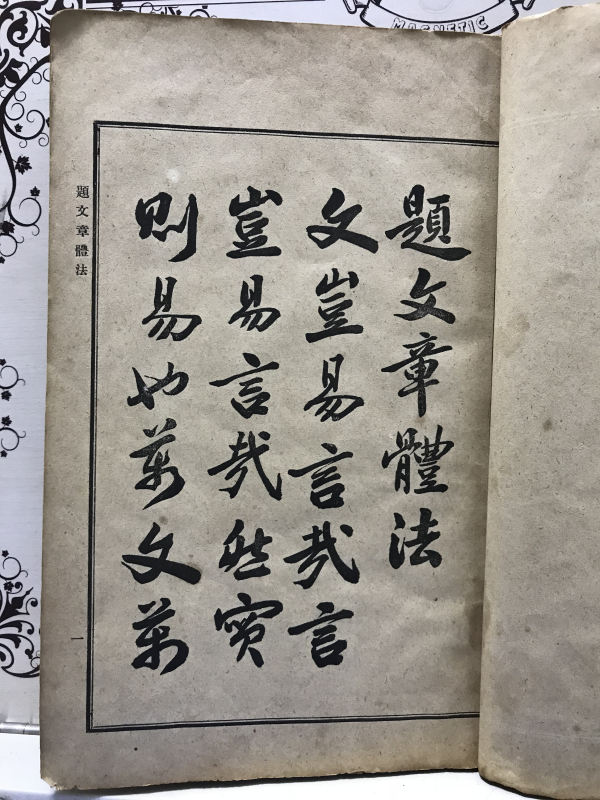 MAGNETIC
題文章體法
文豈易言哉言
豈易言哉然實
則易也萬文萬
題文章體法
一